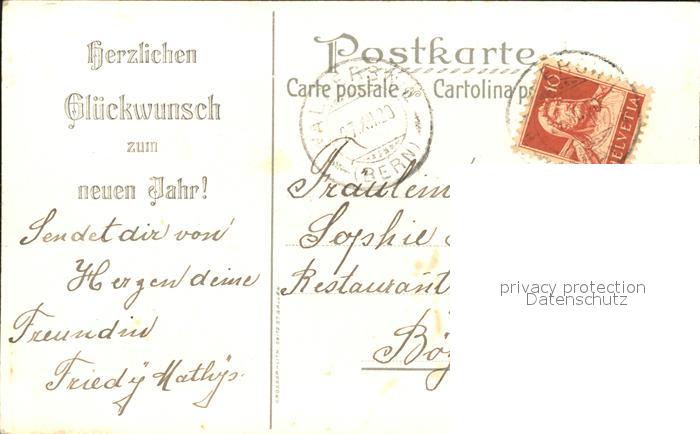 Herzlichen
Glückwunsch
zum
neuen Jahr!
Sendet dir von
Herzen deine
Freundin
Friedÿ Mathÿs.
Postkarte
Carte postale Cartolina po
(BERN)
10
HELVETIA
Fräulein
Sophie
Restaurant
Bö
privacy protection
Datenschutz